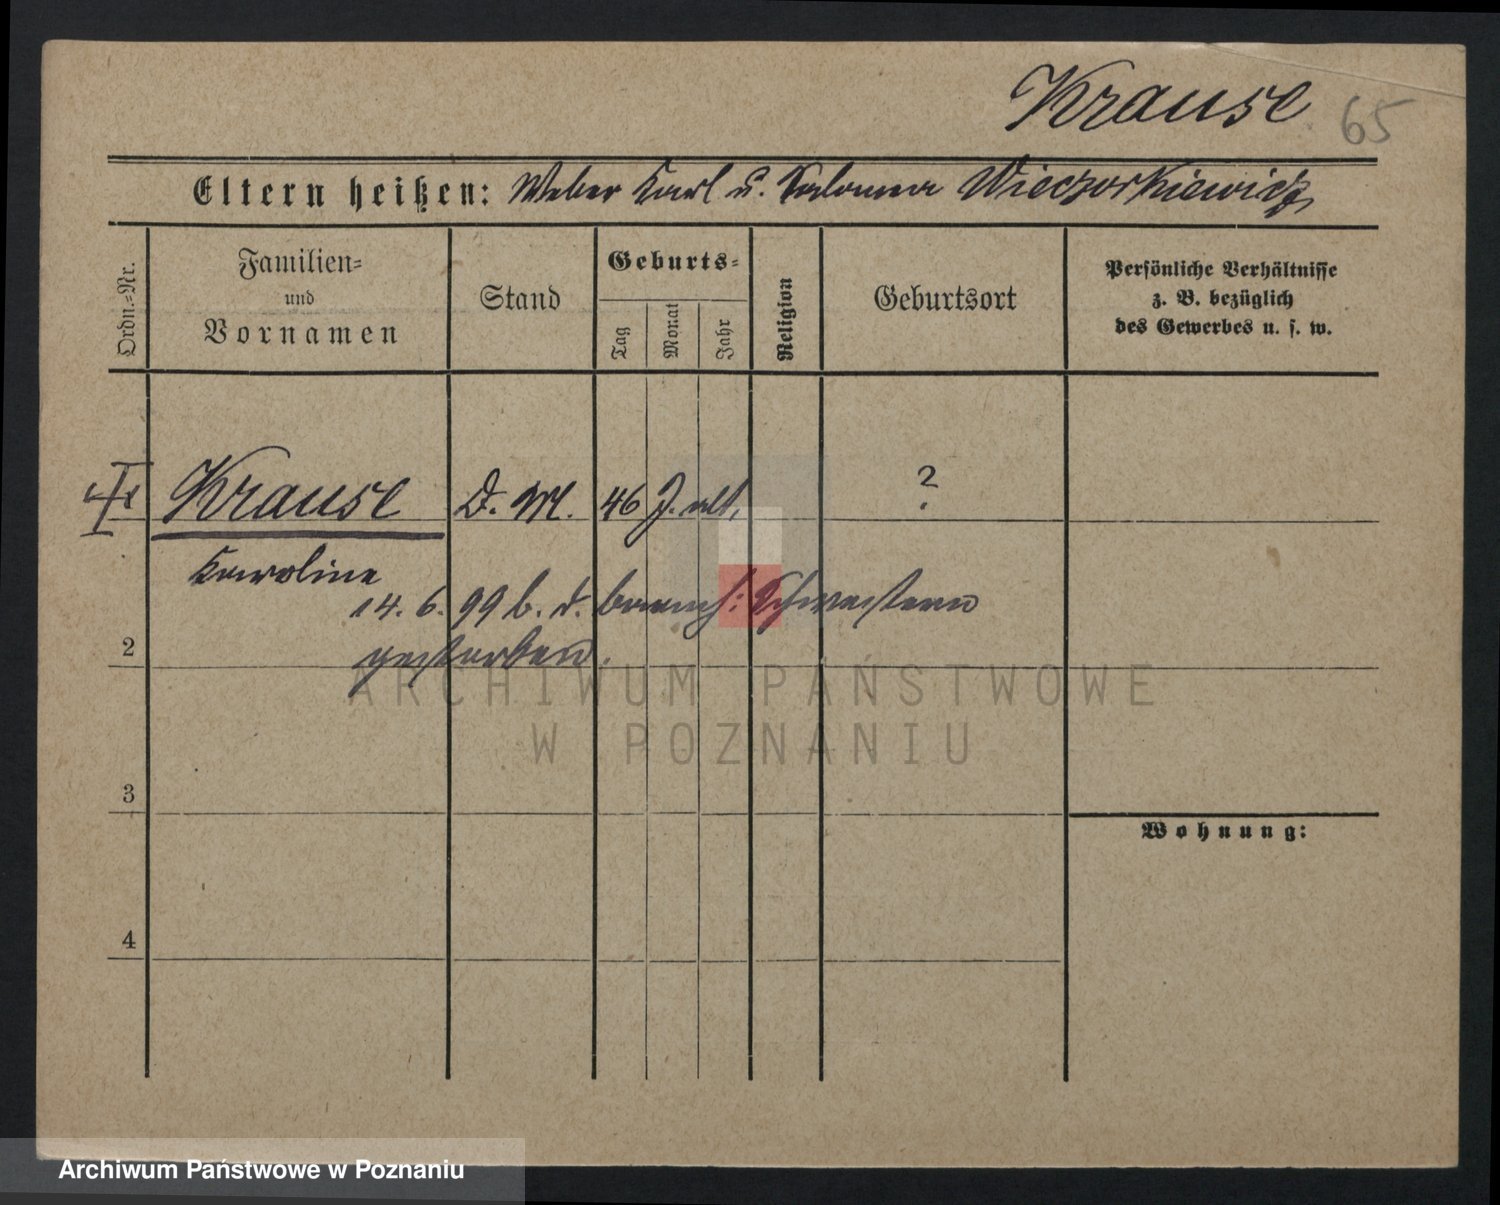 Krause 65
Eltern heißen: Weber Karl u. Salomea Wieczorkiewicz
Ordn.-Nr.
Familien-
und
Vornamen
Stand
Geburts-
Tag
Monat
Jahr
Religion
Geburtsort
Persönliche Verhältnisse
z. B. bezüglich
des Gewerbes u. s. w.
Krause D. M. 46 J. alt, ?
Karoline
14. 6. 99 b. d. barmh: Schwestern
2
gestorben.
ARCHIWUM PAŃSTWOWE
W POZNANIU
3
Wohnung:
4
Archiwum Państwowe w Poznaniu